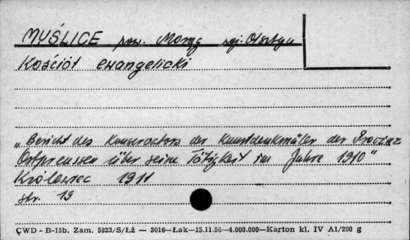 MYŚLICE pow. Morąg woj. Olsztyn
Kościół ewangelicki
„Bericht des Konservators der Kunstdenkmäler der Provinz
Ostpreussen über seine Tätigkeit im Jahre 1910"
Królewiec 1911
str. 19
ÇWD - B-15b. Zam. 5823/S/Łż — 3016—Łak—15.11.56—4.000.000—Karton kl. IV A1/200 g